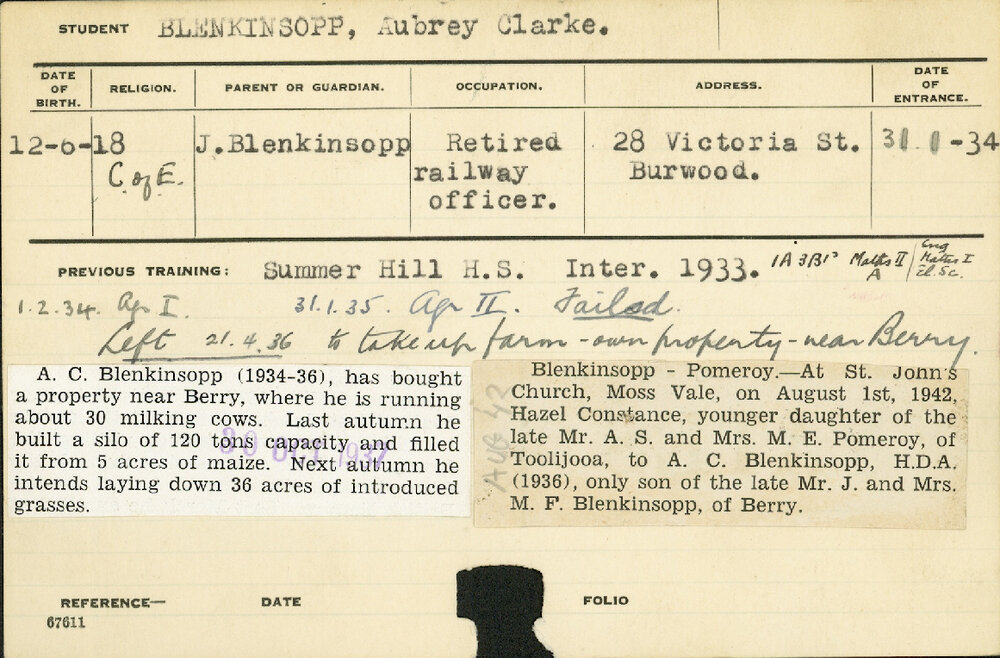 STUDENT BLENKINSOPP, Aubrey Clarke.
DATE OF BIRTH. RELIGION. PARENT OR GUARDIAN. OCCUPATION. ADDRESS. DATE OF ENTRANCE.
12-6-18 J.Blenkinsopp Retired 28 Victoria St. 31 1-34
C. of E. railway Burwood.
officer.
PREVIOUS TRAINING: Summer Hill H.S. Inter. 1933. 1A 3B's Maths II A / Eng Maths I El. Sc.
1.2.34. Agr I. 31.1.35. Agr II. Failed.
Left 21.4.36 to take up farm - own property - near Berry.
A. C. Blenkinsopp (1934-36), has bought
a property near Berry, where he is running
about 30 milking cows. Last autumn he
built a silo of 120 tons capacity and filled
it from 5 acres of maize. Next autumn he
intends laying down 36 acres of introduced
grasses.
30 OCT 1937
Blenkinsopp - Pomeroy.—At St. John's
Church, Moss Vale, on August 1st, 1942,
Hazel Constance, younger daughter of the
late Mr. A. S. and Mrs. M. E. Pomeroy, of
Toolijooa, to A. C. Blenkinsopp, H.D.A.
(1936), only son of the late Mr. J. and Mrs.
M. F. Blenkinsopp, of Berry.
AUG 42
REFERENCE— DATE FOLIO
67611